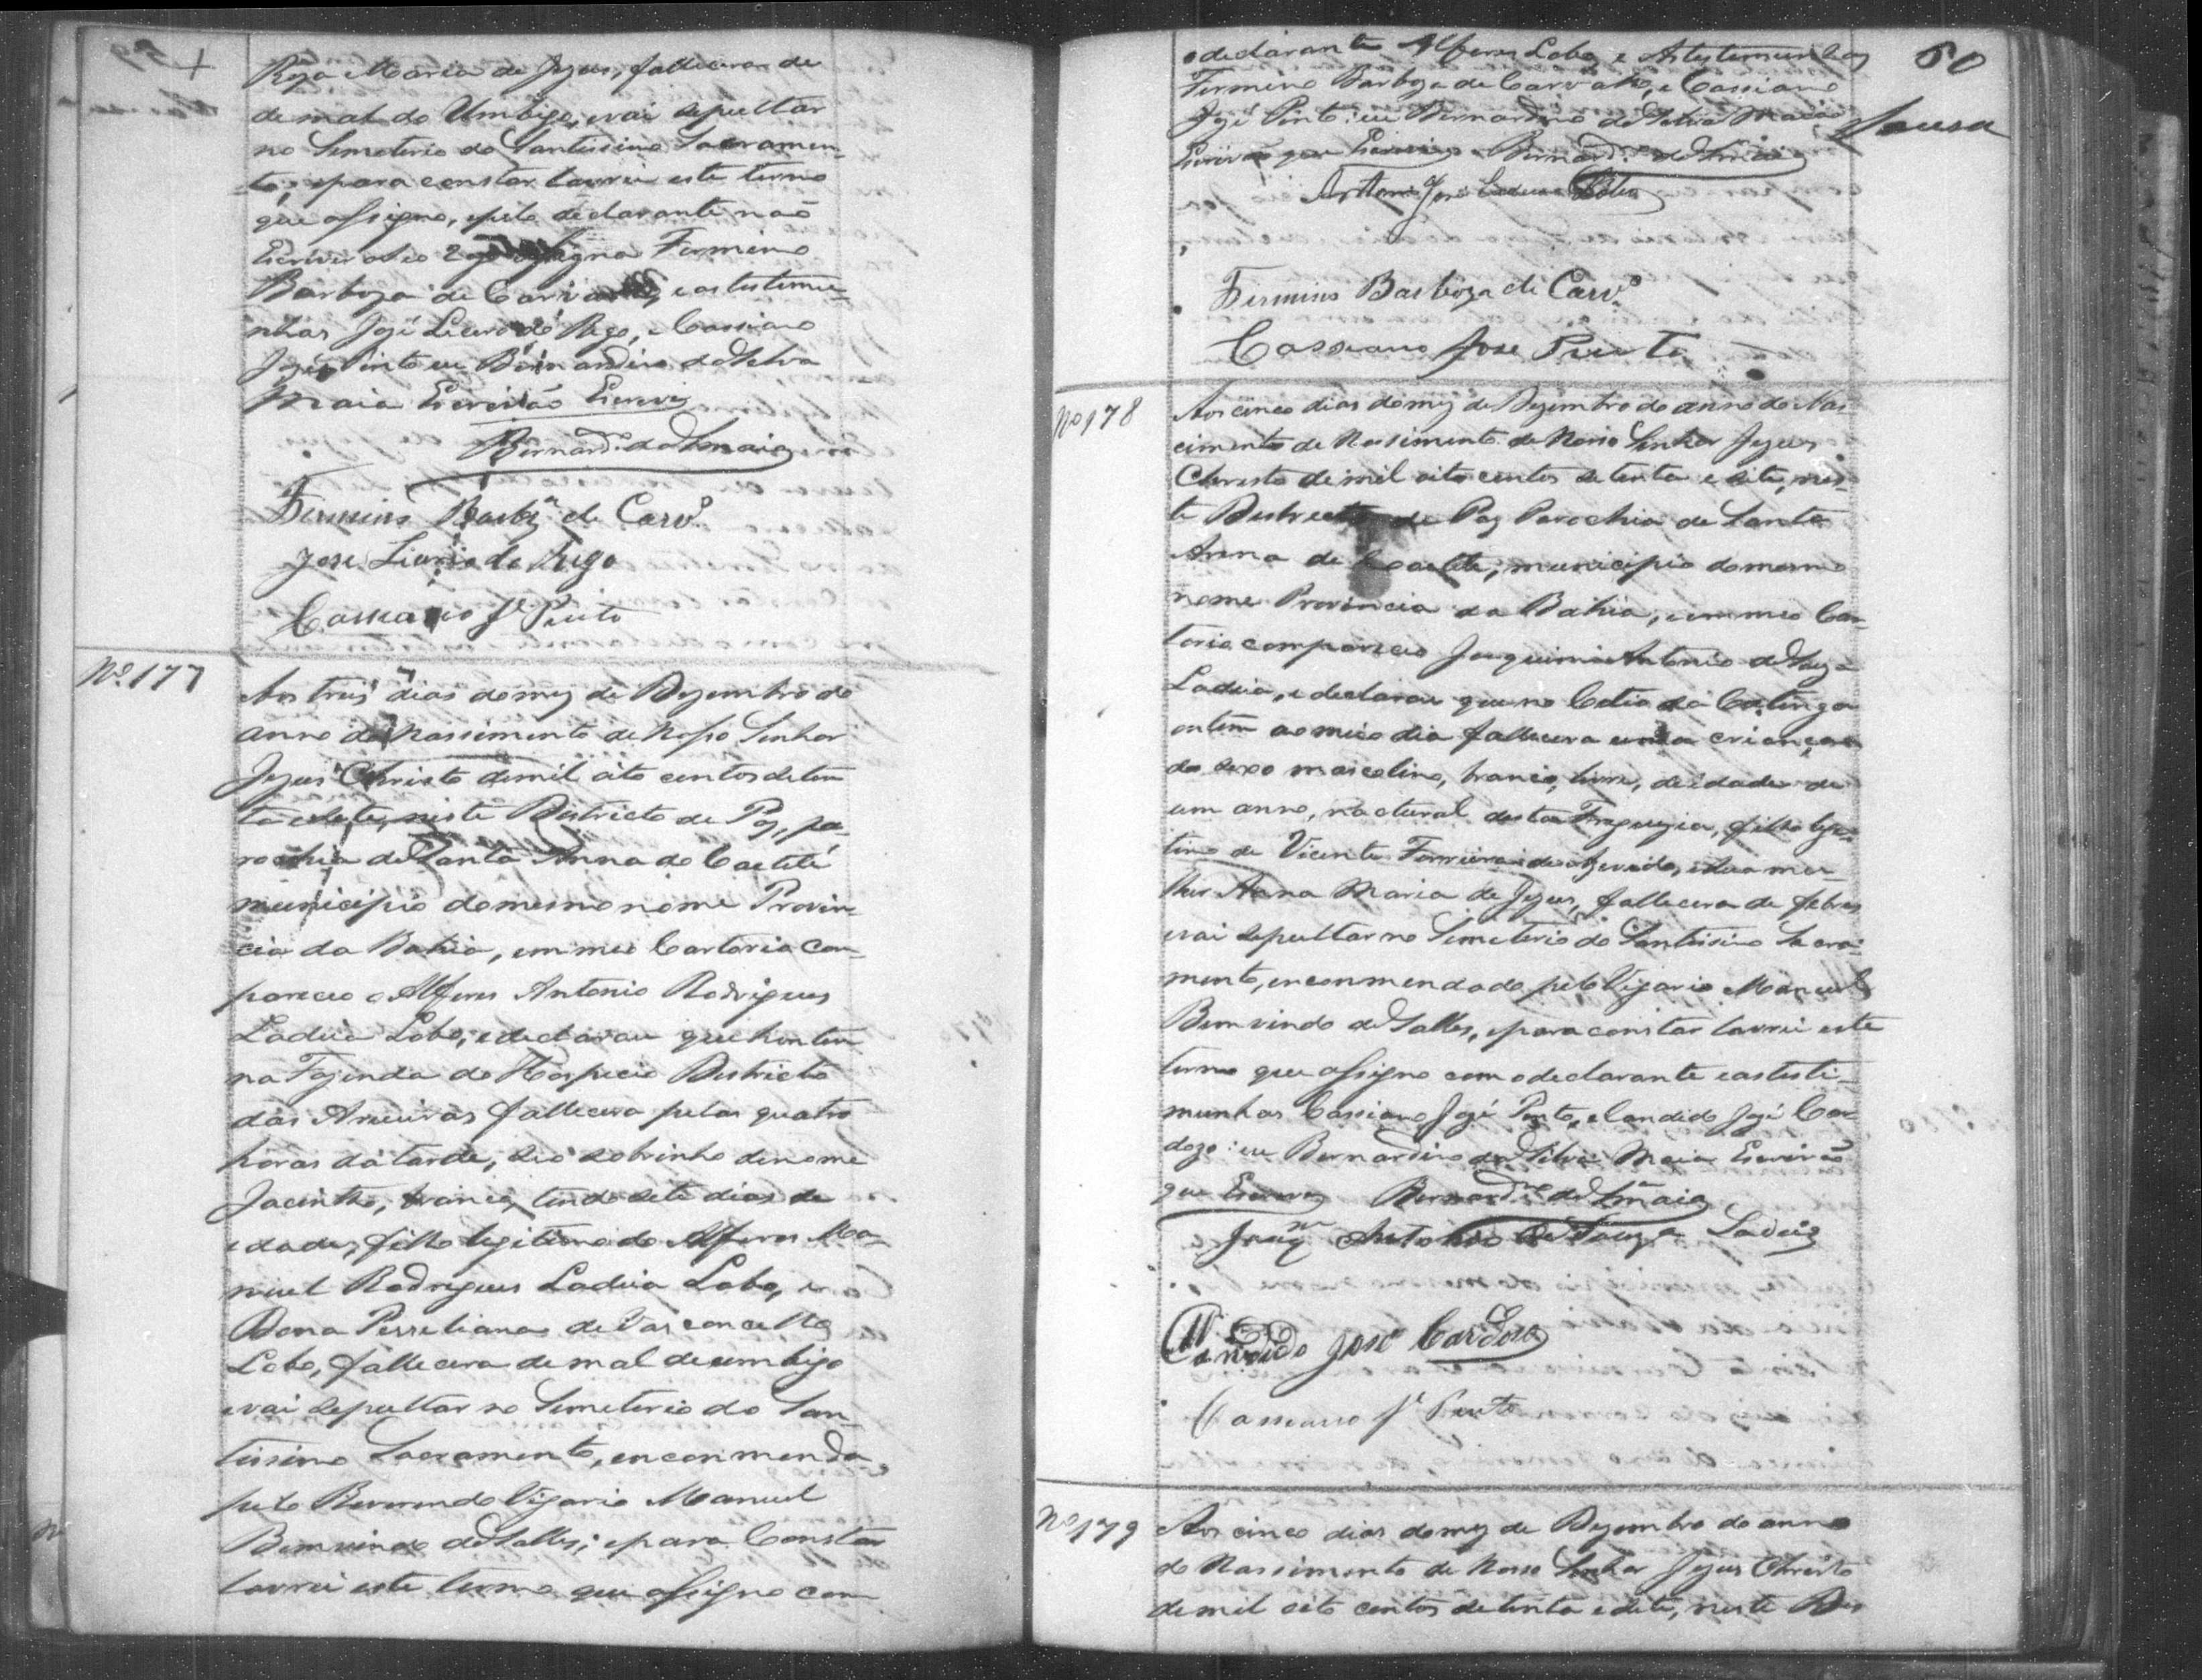 Roza Maria de Jezus, fallecera de
de mal do Umbigo, e vai sepultar
no Semeterio do Santissimo Sacramen-
to; e para constar lavrei este termo
que assigno, e pelo declarante não
Escrever a seo rogo assigna Fermino
Barboza de Carvalho, e as testemu-
nhas José Licino do Rego, e Cassiano
José Pinto eu Bernardino da Silva
Maia Escrivão Escrevi
Bernard.no da S.a Maia
Firmino Barbz.a de Carv.o
Jose Licinio do Rego
Cassiano J.e Pinto
Nº 177
Aos tres dias do mez de Dezembro do
anno do Nassimento de Nosso Senhor
Jezus Christo de mil oito centos seten
ta e sete, neste Districto de Paz, pa-
rochia de Santa Anna do Caeteté
municipio do mesmo nome Provin-
cia da Bahia, em meo Cartorio com-
pareceo o Alferes Antonio Rodrigues
Ladeia Lobo, e declarou que hontem
na Fazenda do Hospicio Districto
das Aroeiras fallecera pelas quatro
horas da tarde, seo sobrinho de nome
Jacintho, branco, tendo sete dias de
idade, filho legitimo do Alferes Ma-
nuel Rodrigues Ladeia Lobo, e
Dona de Vasconcellos
Lobo, fallecera de mal de umbigo
e vai sepultar no Semeterio do San-
tissimo Sacramento, enconmenda
pelo Reverendo Vigario Manuel
Bemvindo de Salles; e para Constar
lavrei este termo que assigno com
60
Sousa
o declarante Alferes Lobo, e As testemunhas
Fermino Barboza de Carvalho, e Cassiano
José Pinto: eu Bernardino da Silva Maia
Escrivão que Escrevi Bernard.no da S.a Maia
Antonio Ladeia Lobo
Firmino Barboza de Carv.o
Cassiano Jose Pinto
Nº 178
Aos cinco dias do mez de Dezembro do anno do Nas-
cimento de Nassimento de Nosso Senhor Jezus
Christo de mil oito centos setenta e sete, nes-
te Destricto de Paz Parochia de Santa
Anna de Caeteté, municipio do mesmo
nome Provincia da Bahia, e em meo Car-
torio compareceo Joaquim Antonio de Souza
Ladeia, e declarou que no Citio da Catinga
ontem ao meio dia fallecera uma criança
do sexo mascolino, branco, livre, de idade de
um anno, natural desta Freguezia, filho legi-
timo de Vicente Ferreira de Azevedo, e sua mu-
lher Anna Maria de Jezus, fallecera de febres
e vai sepultar no Semeterio do Santissimo Sacra-
mento, enconmendado pelo Vigario Manuel
Bemvindo de Salles, e para constar lavrei este
termo que assigno com o declarante e as testi-
munhas Cassiano José Pinto, e Candido José Car
dozo: eu Bernardino da Silva Maia Escrivão
que Escrevi Bernard.no da S.a Maia
Joaq.m Antonio de Souza Ladeia
Candido José Cardoso
Cassiano J.e Pinto
Nº 179
Aos cinco dias do mez de Dezembro do anno
do Nassimento de Nosso Senhor Jezus Christo
de mil oito centos setenta e sete, neste Des